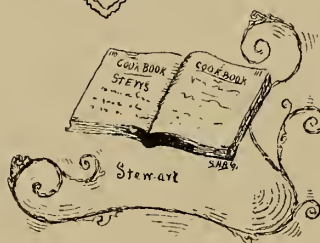 COOK BOOK
STEWS
COOK BOOK
Stew-art